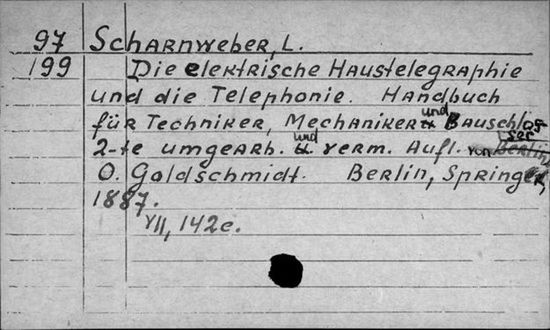 97 Scharnweber, L.
199 Die elektrische Haustelegraphie
und die Telephonie. Handbuch
für Techniker, Mechaniker und Bauschlos
ser
2-te umgearb. und verm. Aufl. von Berlin,
O. Goldschmidt. Berlin, Springer,
1887.
VII, 142c.